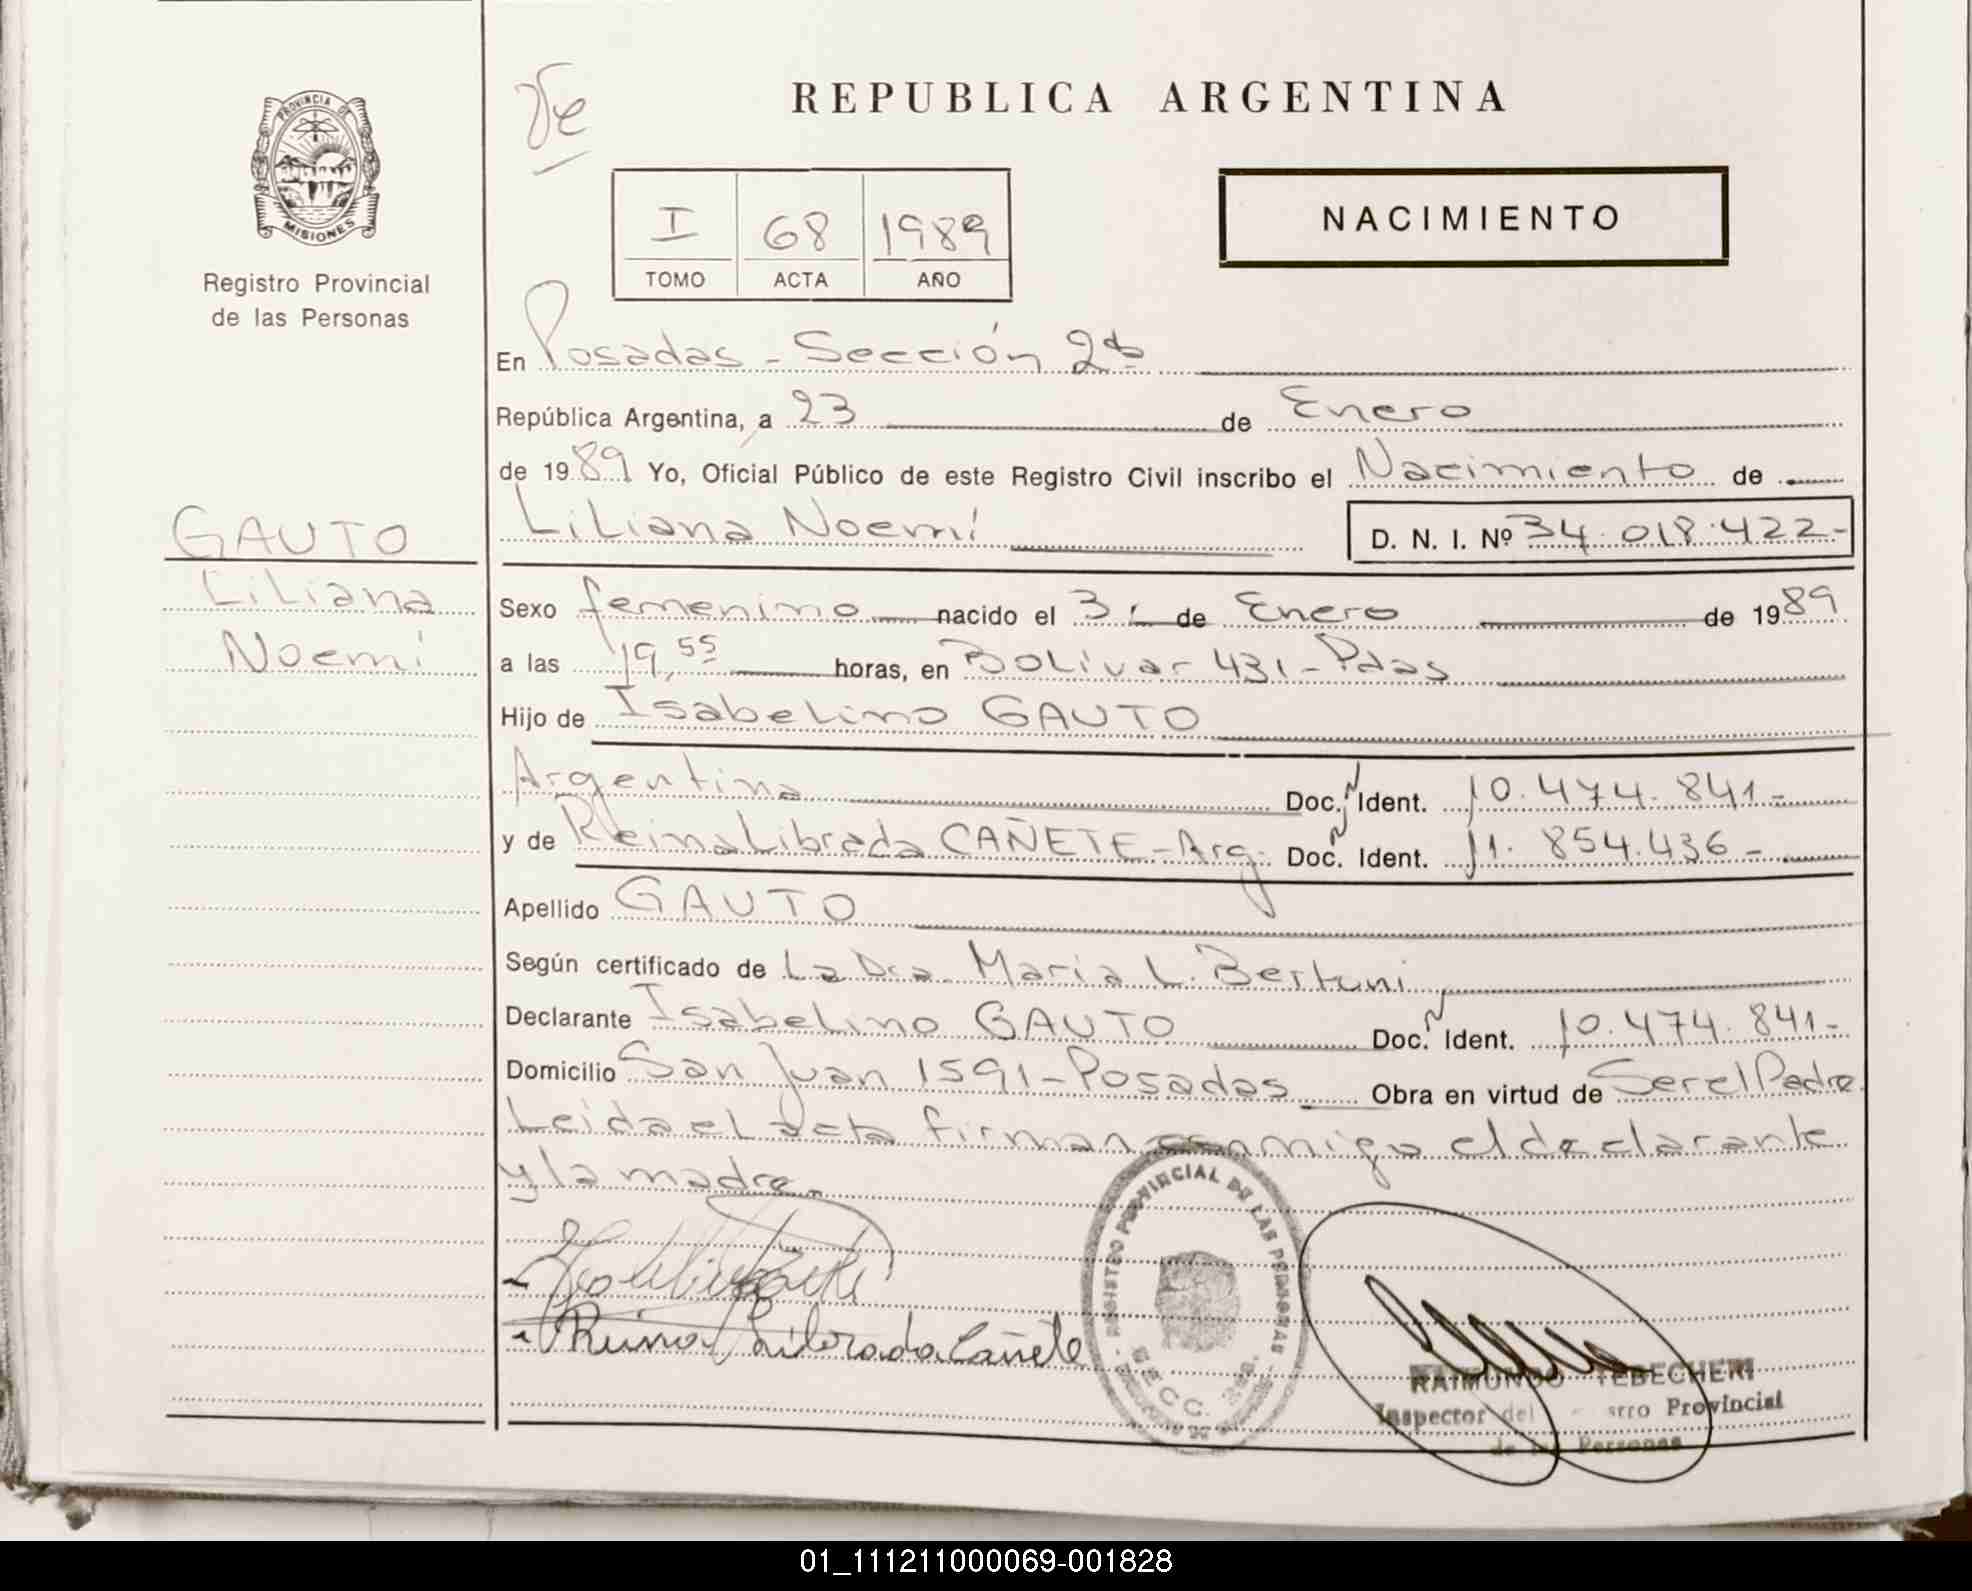 REPUBLICA ARGENTINA
PROVINCIA DE
MISIONES
Registro Provincial
de las Personas
I 68 1989
TOMO ACTA AÑO
NACIMIENTO
En Posadas - Sección 2ª
República Argentina, a 23 de Enero
de 1989 Yo, Oficial Público de este Registro Civil inscribo el Nacimiento de
GAUTO
Liliana
Noemí
Liliana Noemí D. N. I. Nº 34.018.422-
Sexo femenino nacido el 3 de Enero de 1989
a las 19,55 horas, en Bolívar 431 - Pdas
Hijo de Isabelino GAUTO
Argentina Doc. Ident. 10.474.841-
y de Reina Librada CAÑETE - Arg. Doc. Ident. 11.854.436-
Apellido GAUTO
Según certificado de La Dra. María L. Bertoni
Declarante Isabelino GAUTO Doc. Ident. 10.474.841-
Domicilio San Juan 1591 - Posadas Obra en virtud de Ser el Padre
Leida el acta firman conmigo el declarante
y la madre.
Reina Librada Cañete
REGISTRO PROVINCIAL DE LAS PERSONAS
SECC. 2da.
RAIMUNDO TEBECHERI
Inspector del Provincial
de las Personas
01_111211000069-001828